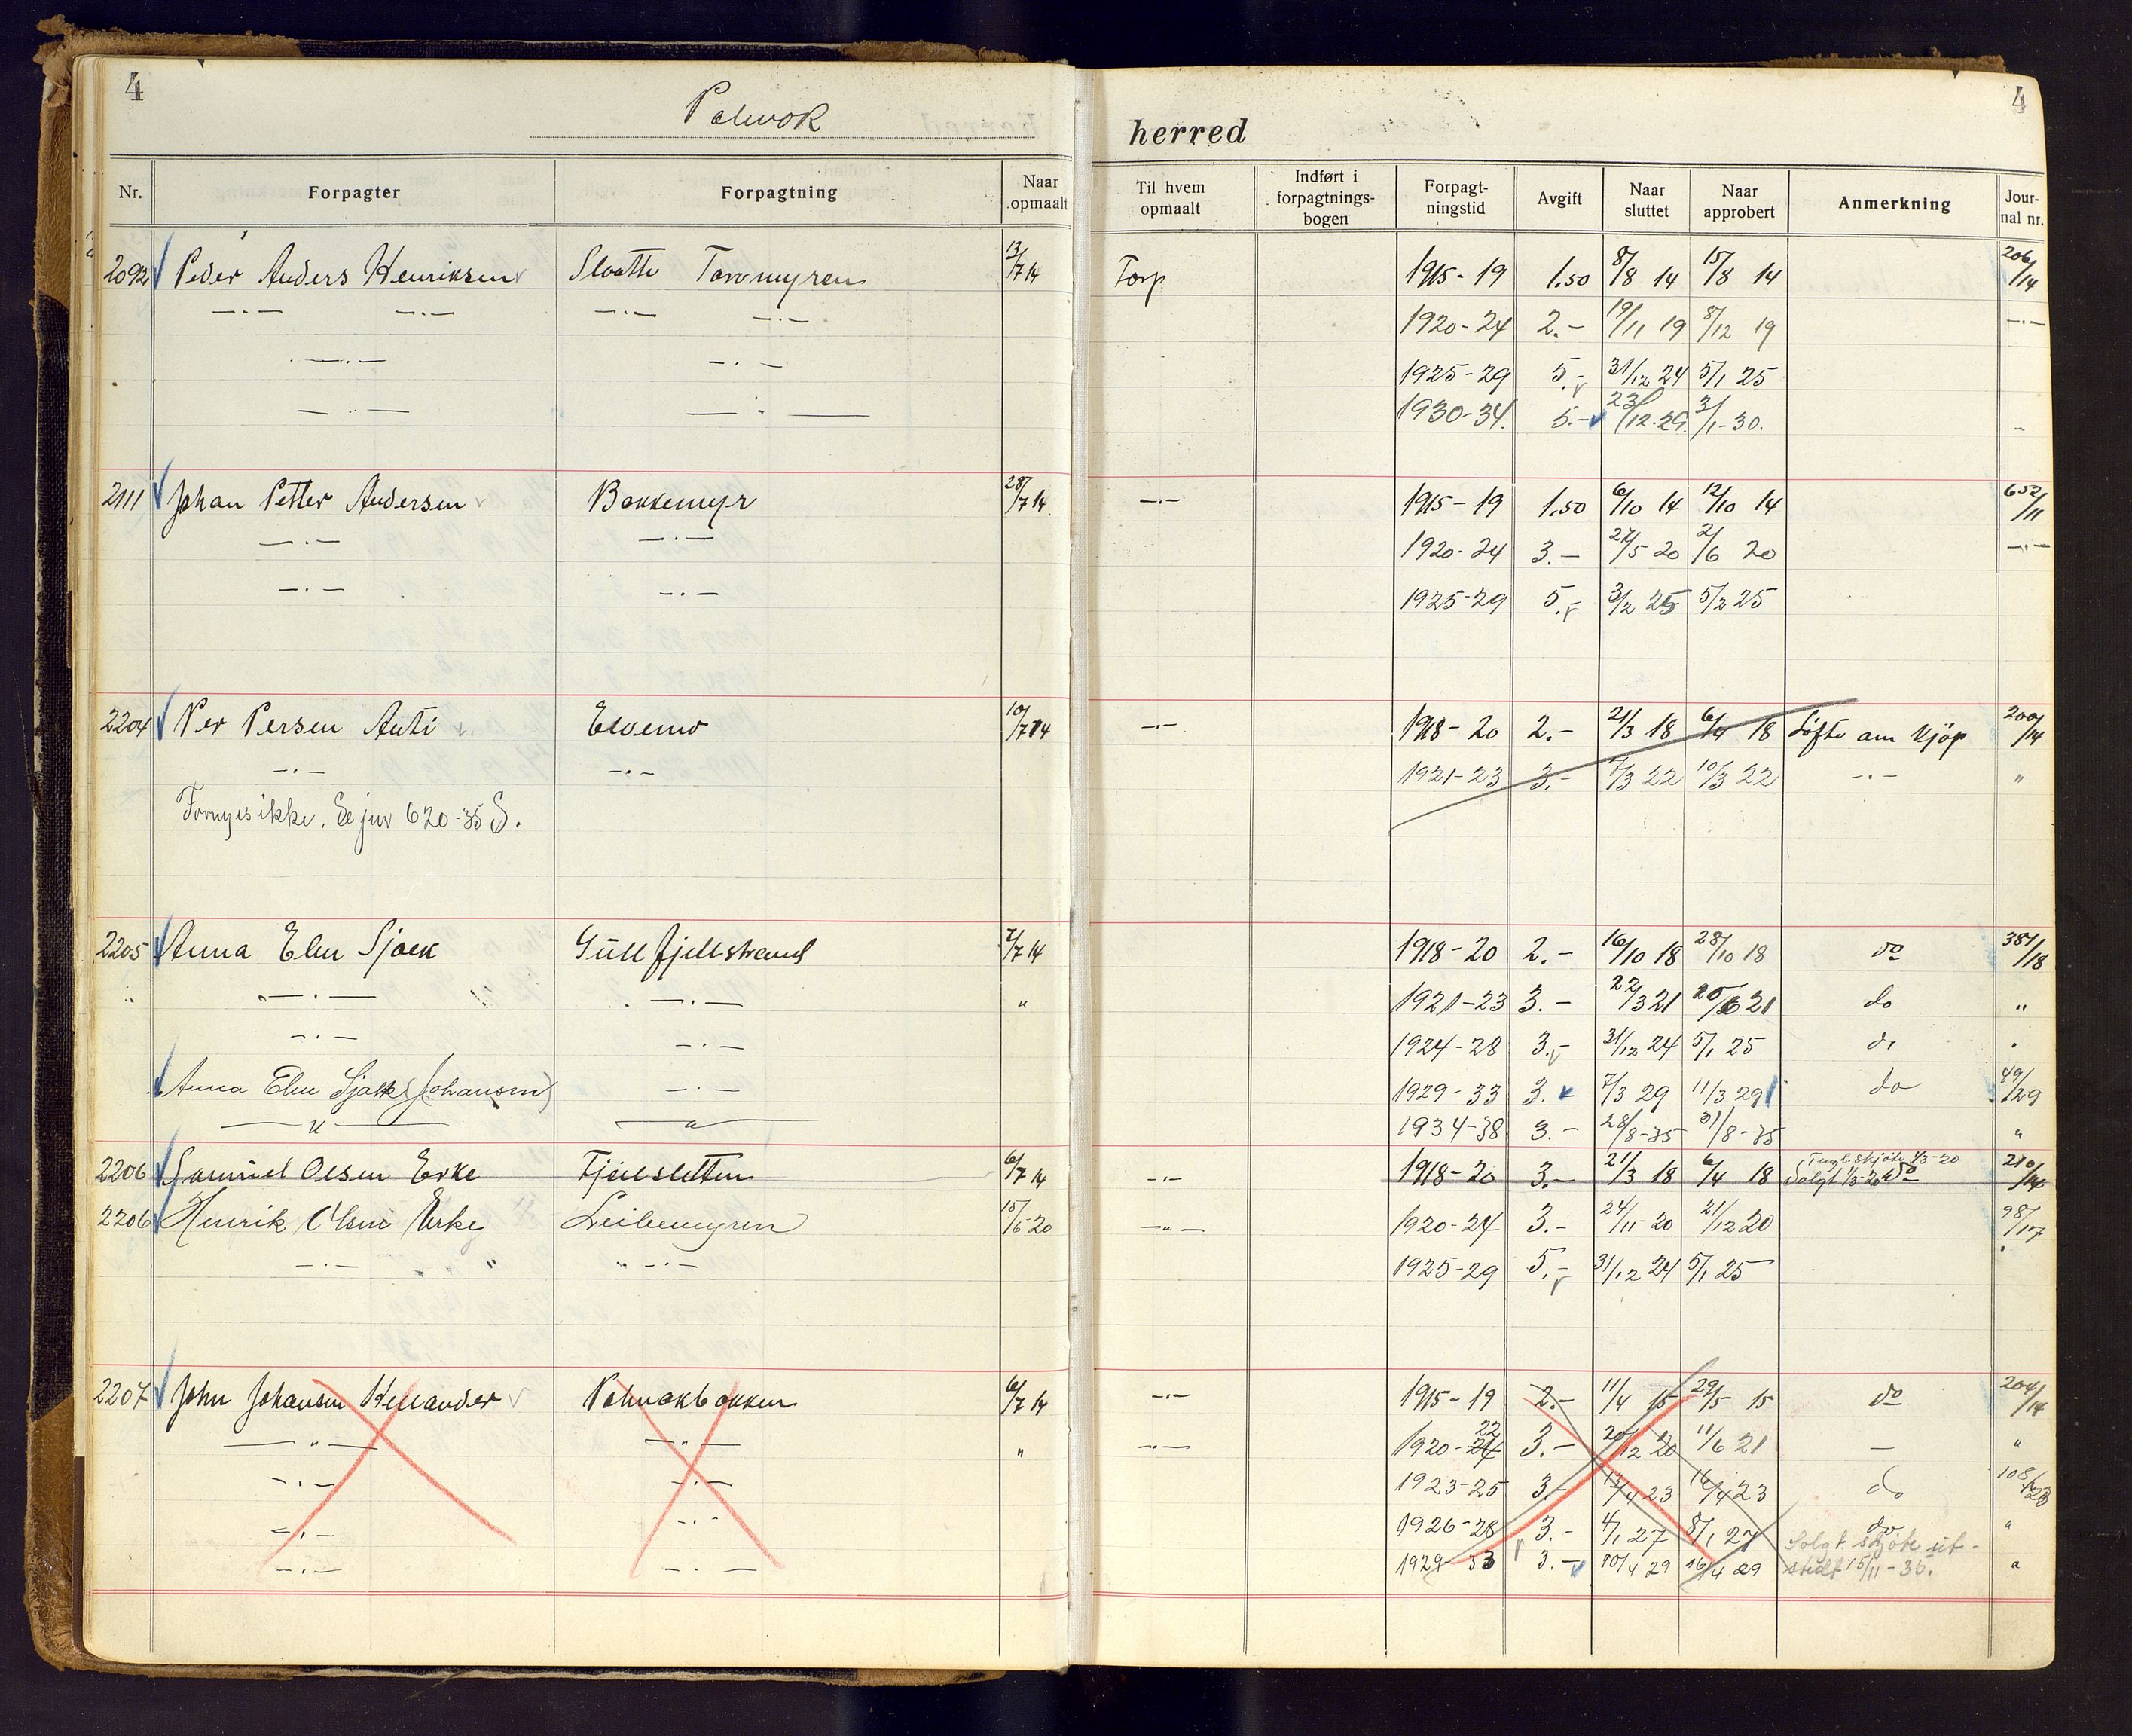 4
4
Polmak herred
Nr. Forpagter Forpagtning Naar opmaalt Til hvem opmaalt Indført i forpagtnings-bogen Forpagt-ningstid Avgift Naar sluttet Naar approbert Anmerkning Jour-nal nr.
2092 Peder Anders Henriksen Slaatte Torvmyren 13/7 14 Torp 1915-19 1.50 8/8 14 15/8 14 206/14
—.— —.— —.— —.— 1920-24 2.- 19/11 19 8/12 19 —.—
—.— —.— 1925-29 5.- 31/12 24 5/1 25
—.— —"— 1930-34. 5.- 23/12-29. 3/1-30.
2111 Johan Petter Andersen Bakkemyr 28/7 14. —.— 1915-19 1.50 6/10 14 12/10 14 652/11
—.— —.— 1920-24 3.- 27/5 20 2/6 20 —.—
—.— —.— 1925-29 5.- 3/2 25 5/2 25
2204 Per Persen Anti Elvemo 10/7 14 —.— 1918-20 2.- 21/3 18 6/4 18 Løfte om kjøp 200/14
—.— —.— 1921-23 3.- 7/3 22 10/3 22 —.— "
Fornyes ikke. Se jnr 620-35 S.
2205 Anna Elen Sjaek Gullfjellstrand 7/7 14 1918-20 2.- 16/10 18 28/10 18 do 381/18
—.— —.— " 1921-23 3.- 22/3 21 20/6 21 do "
—.— —.— 1924-28 3.- 31/12 24 5/1 25 do
Anna Elen Sjaek (Johansen) —.— 1929-33 3. 7/3 29 11/3 29 do 49/29
—"— —"— 1934-38 3.- 28/8-35 31/8-35 "
2206 Samuel Olsen Erke Fjeilsletten 6/7 14 —.— 1918-20 3.- 21/3 18 6/4 18 Solgt 1/3-20 do 210/14
2206 Henrik Olsen Erke Leibemyren 15/6-20 —"— 1920-24 3.- 24/11-20 21/12 20 98/17
—.— " " —.— 1925-29 5.- 31/12 24 5/1 25
2207 John Johansen Hellander Polmakbakken 6/7 14 —.— 1915-19 2.- 11/4 15 29/5 15 do 204/14
—"— —"— " —"— 1920-24 22 3.- 20/12 20 11/6 21 — "
—.— —.— 1923-25 3.- 13/4 23 16/4 23 do 108/23
—.— —.— 1926-28 3.- 4/1 27 8/1 27 do "
—.— —.— 1929-33 3.- 10/4 29 16/4 29 Solgt. skjøte ut-
stedt 15/11-35. "